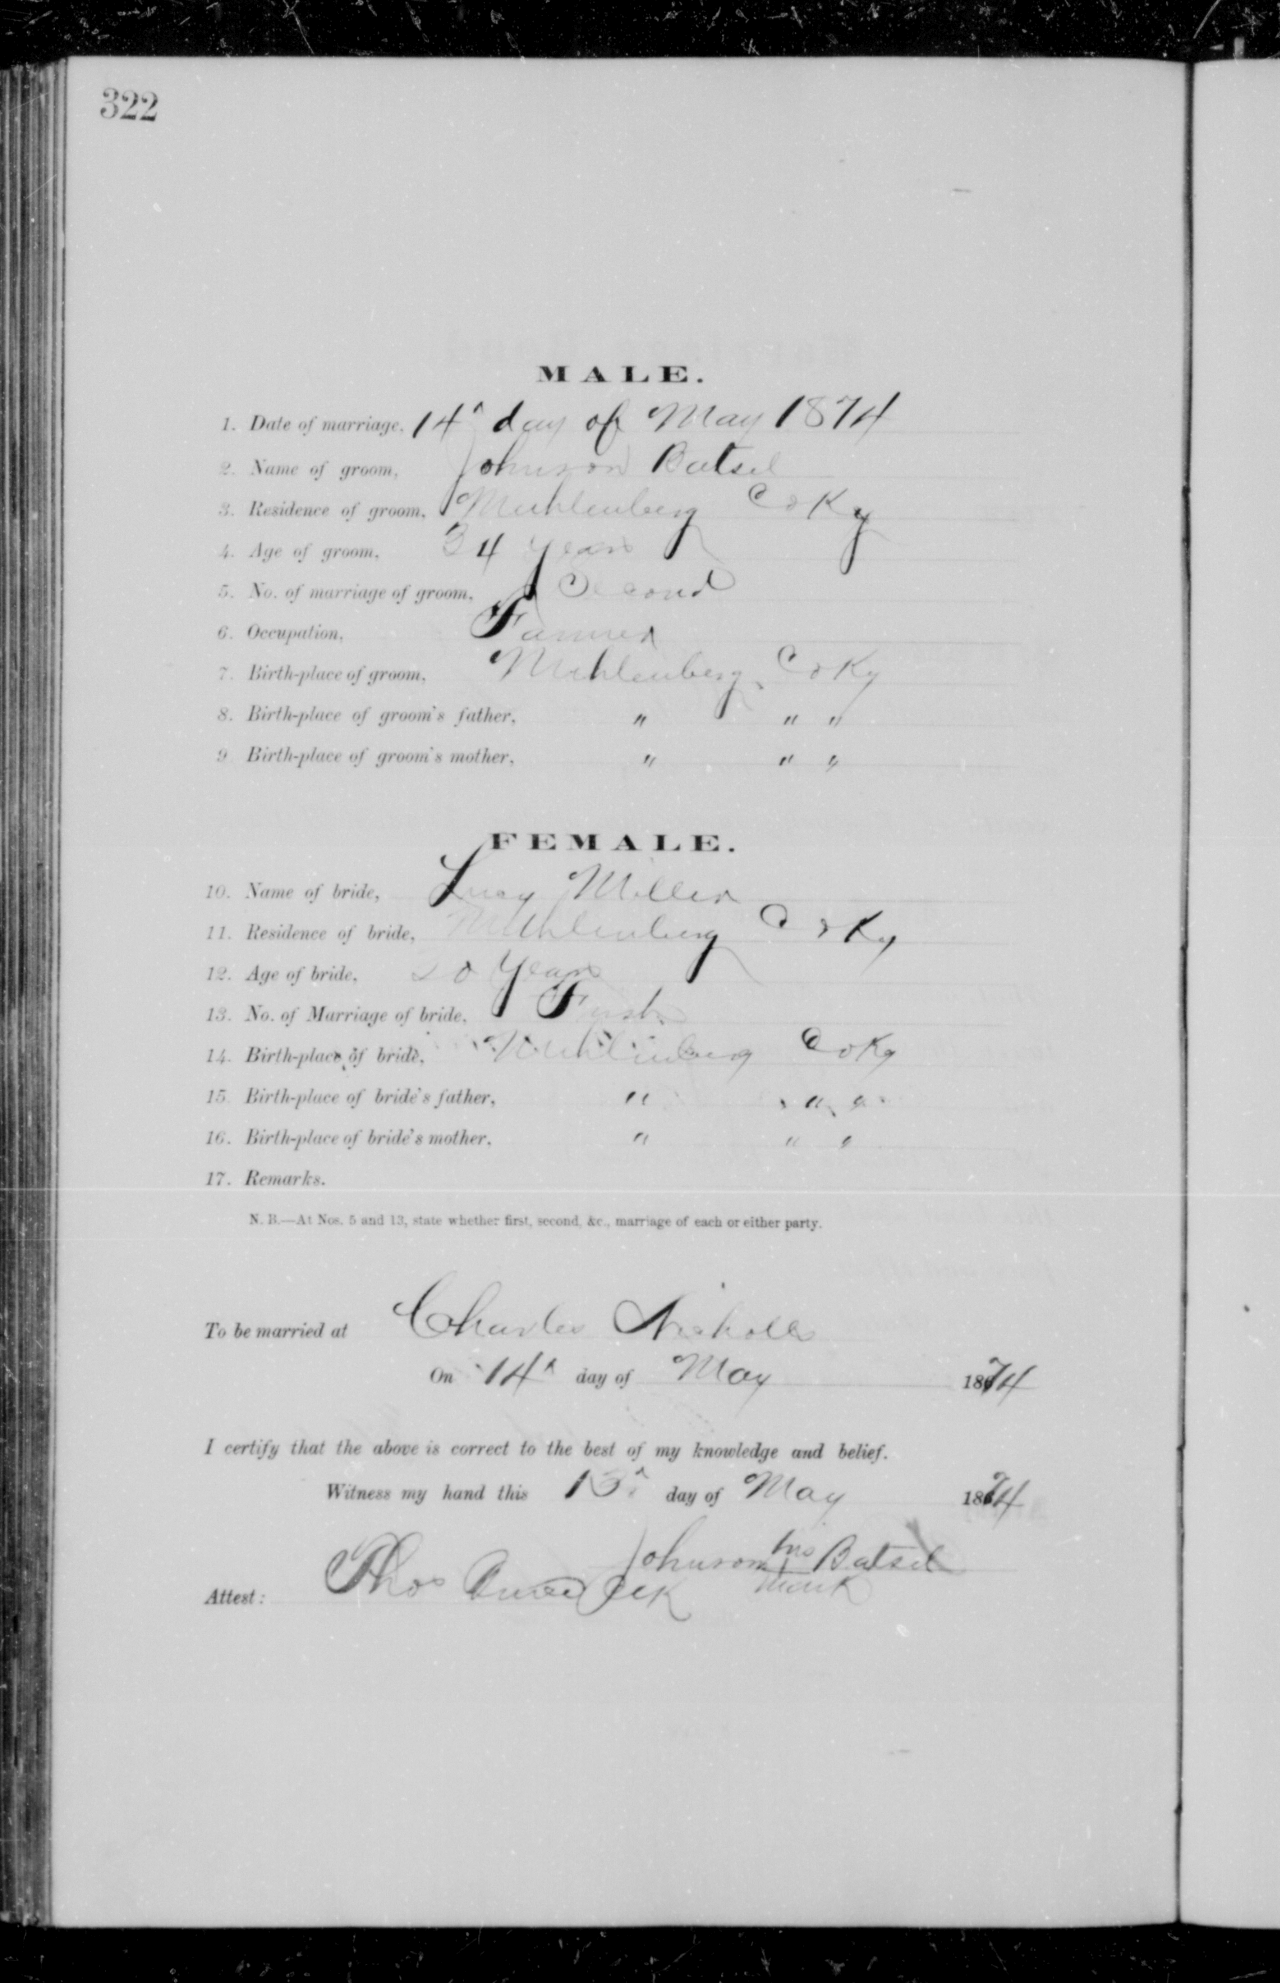 322
MALE.
1. Date of marriage, 14th day of May 1874
2. Name of groom, Johnson Batsel
3. Residence of groom, Muhlenberg Co Ky
4. Age of groom, 34 years
5. No. of marriage of groom, Second
6. Occupation, Farmer
7. Birth-place of groom, Muhlenberg Co Ky
8. Birth-place of groom's father, " " "
9 Birth-place of groom's mother, " " "
FEMALE.
10. Name of bride, Lucy Miller
11. Residence of bride, Muhlenberg Co Ky
12. Age of bride, 20 Years
13. No. of Marriage of bride, First
14. Birth-place of bride, Muhlenberg Co Ky
15. Birth-place of bride's father, " " "
16. Birth-place of bride's mother, " " "
17. Remarks.
N. B.—At Nos. 5 and 13, state whether first, second, &c., marriage of each or either party.
To be married at Charles Nicholls
On 14th day of May 1874
I certify that the above is correct to the best of my knowledge and belief.
Witness my hand this 13th day of May 1874
Johnson his Batsel
mark
Attest: Thos